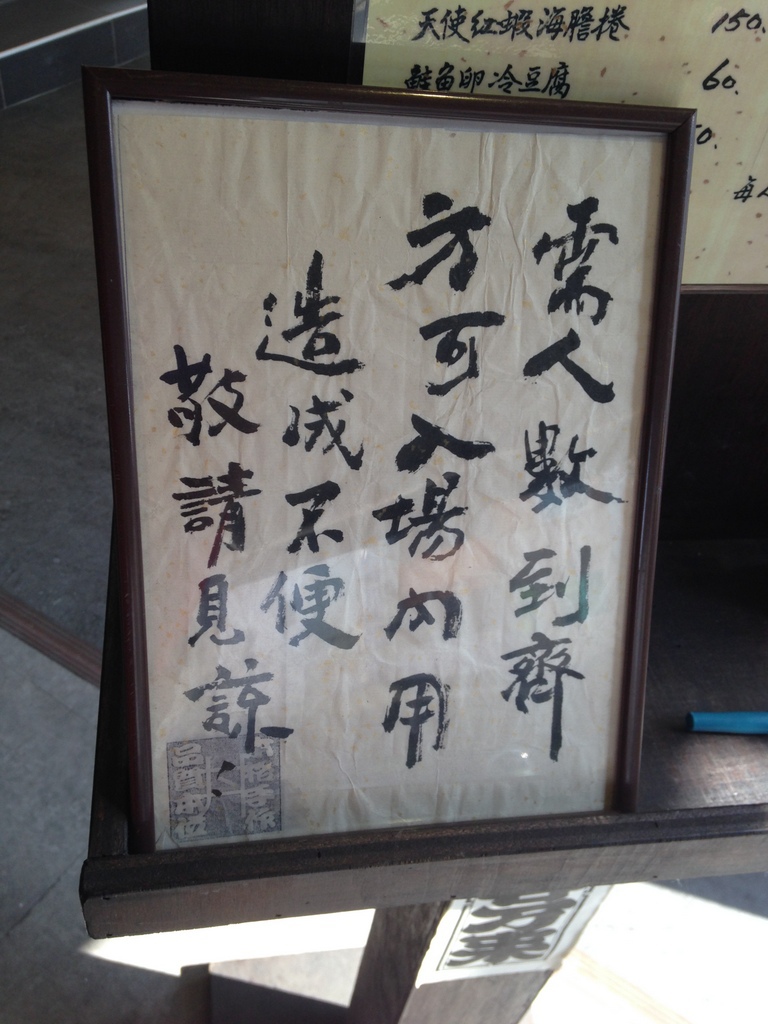 需人數到齊
方可入場內用
造成不便
敬請見諒！
天使紅蝦海膽捲 150.
鮭魚卵冷豆腐 60.
0.
每人